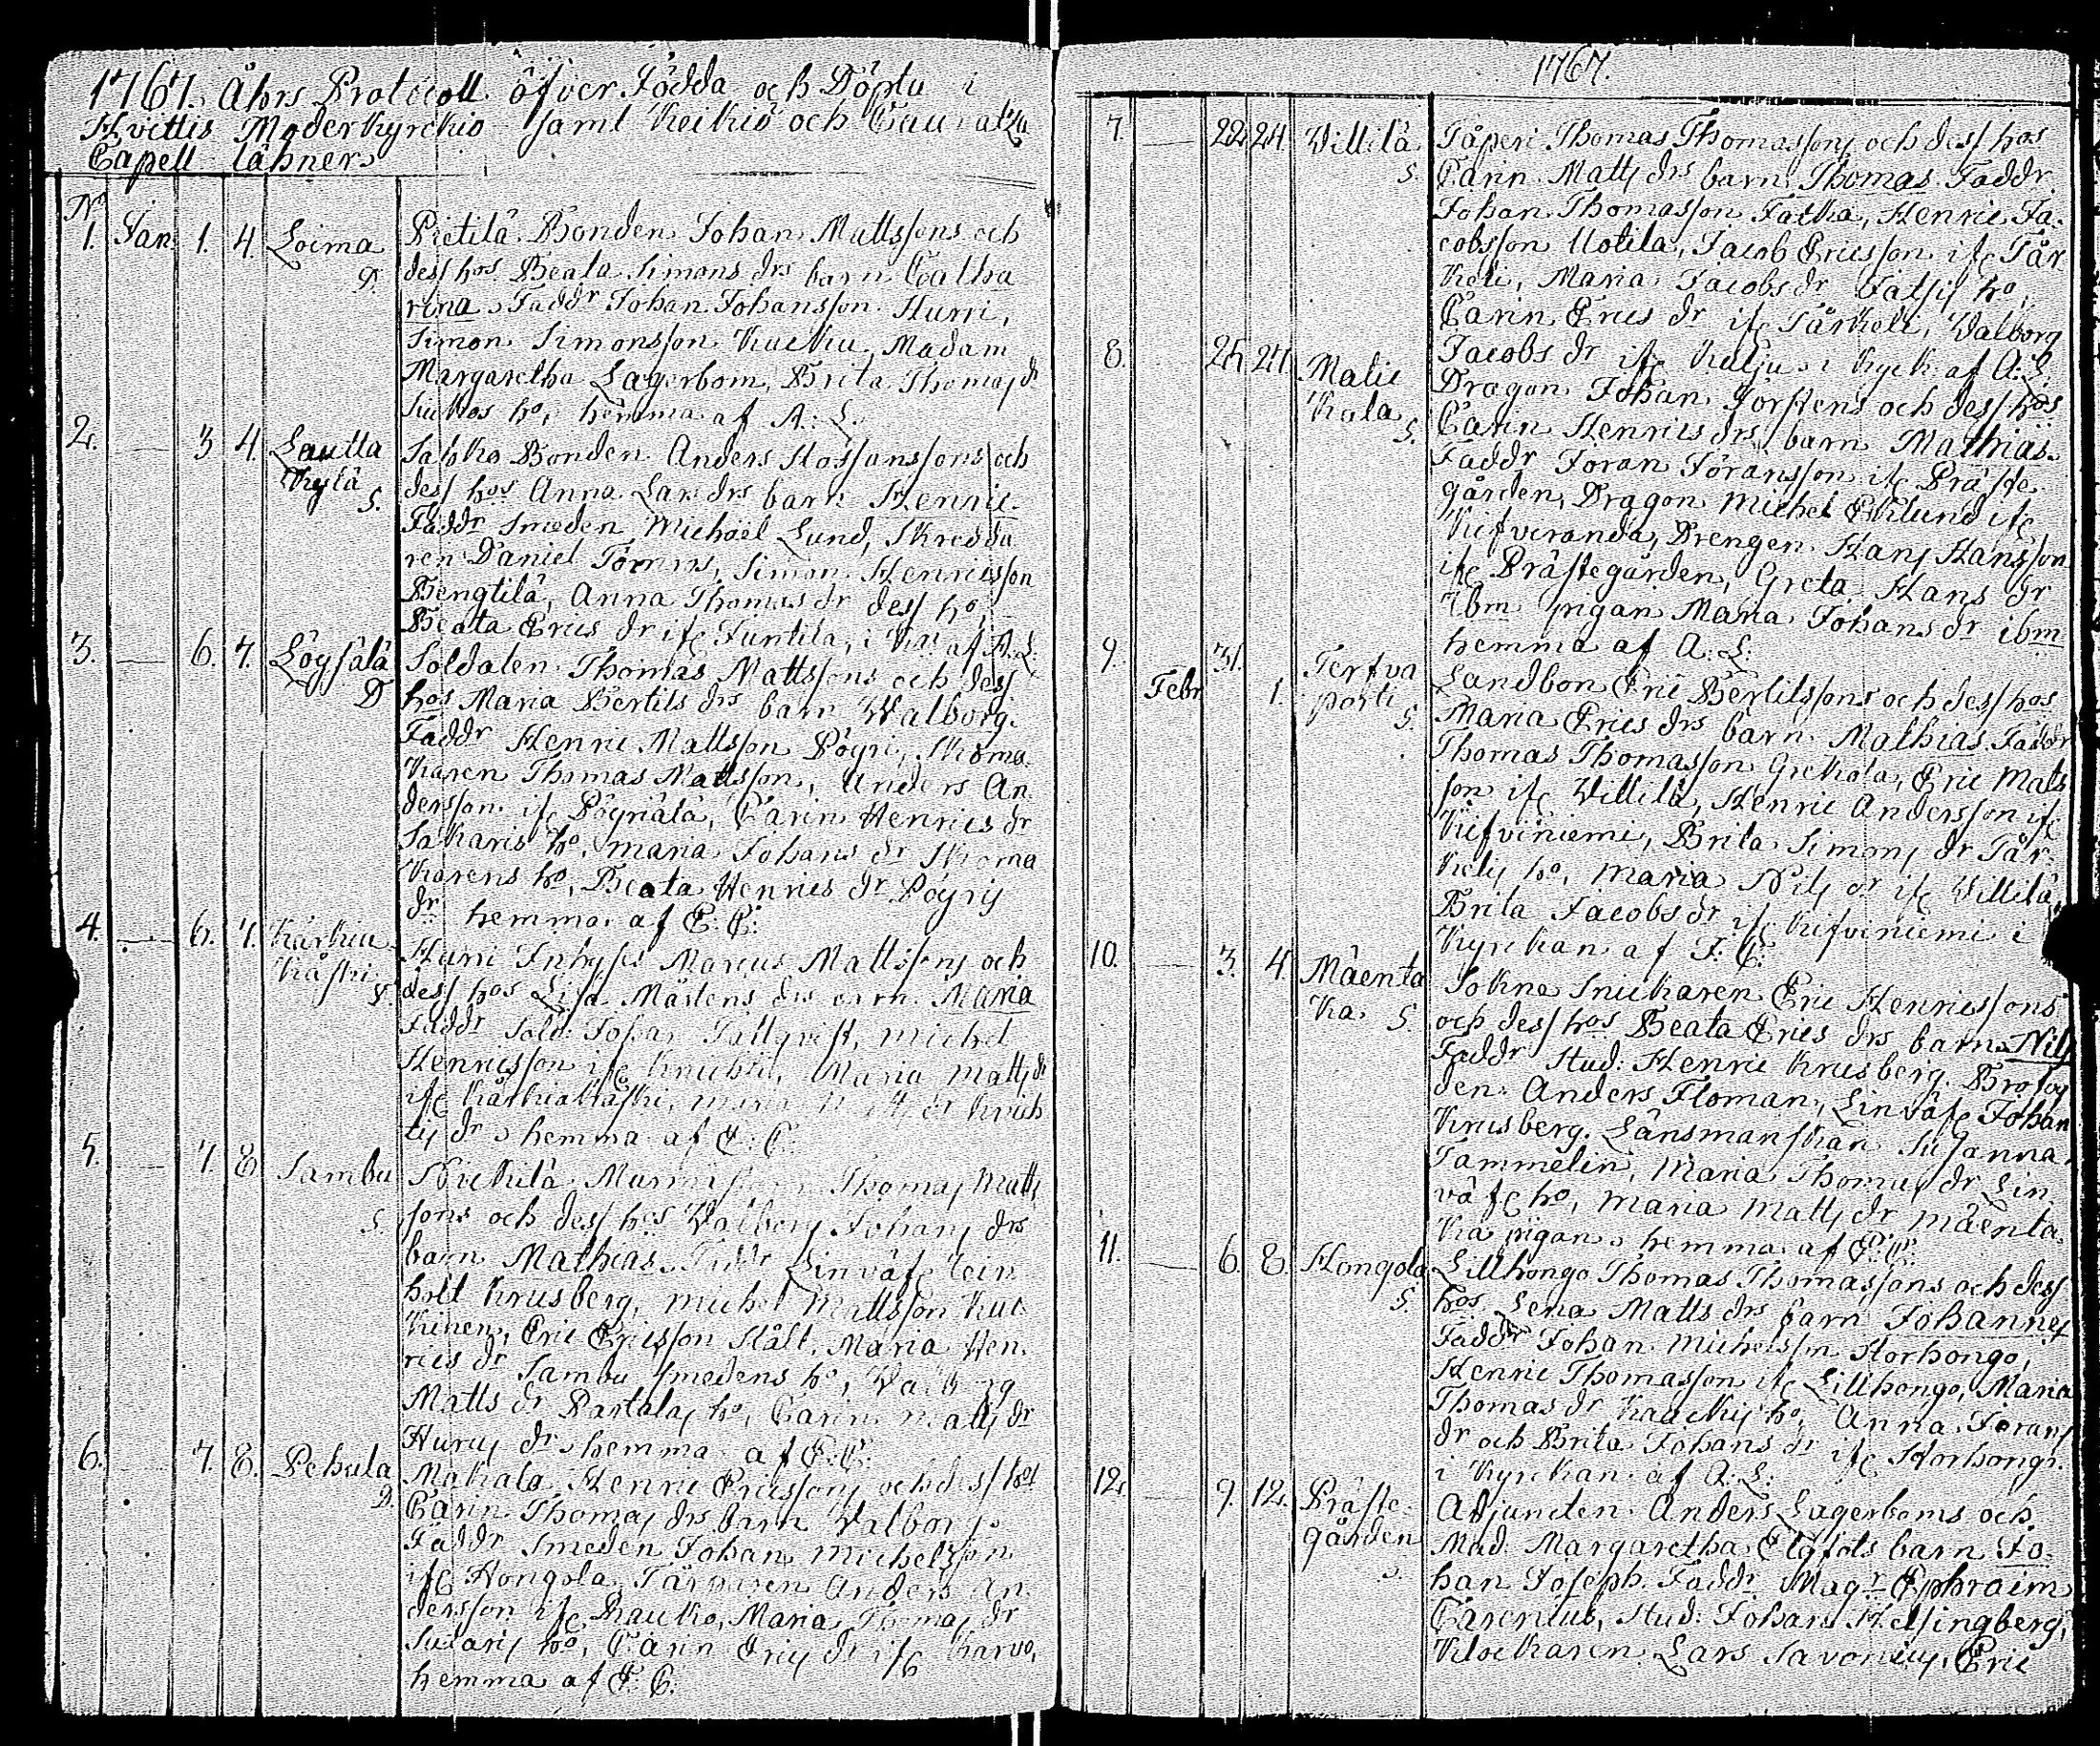 1767. Åhrs Protocoll öfver Födda och Döpta i
Hvittis Moderkyrckio samt Keikiö och Cauvatza
Capell lähner
No
1. Jan. 1. 4. Loima D. Pietilä Bonden Johan Mattssons och
dess hos Beata Simons drs barn Catha
rina Faddr Johan Johansson Hurri,
Simon Simonsson Kucku, Madam
Margaretha Lagerbom, Brita Thomas dr
ho, hemma af A: L.
2. — 3 4. Lautta Kylä S. Bonden Anders och
dess hos Anna Lars drs barn Henric.
Faddr Smeden Michael Lund, Skredda
ren Daniel Simon Henricsson
Bengtilä, Anna Thomas dr dess ho,
Beata Erics dr ifr Juntila, i af A: L:
3. — 6. 7. D Soldaten Thomas Mattssons och dess
hos Maria Bertils drs barn Walborg.
Faddr Henric Mattsson Pögri, Skoma
karen Thomas Mattsson, Anders An
dersson ifr Carin Henrics dr
ho, Maria Johans dr Skoma
karens ho, Beata Henrics dr
dr hemma af E: C:
4. — 6. 7. Kärkiu Marcus Mattssons och
dess hos Lisa Mårtens drs barn Maria
Faddr Sold: Johan Michel
Henricsson ifr Maria Matts dr
ifr
dr hemma af E: C:
5. — 7. 8. Sambu S. Thomas Matts
sons och dess hos Walborg Johans drs
barn Mathias. Faddr Linväfr
holt Krusberg, Michel Mattsson
Eric Ericsson Stålt, Maria Hen
rics dr Sambu Smedens ho, Walborg
Matts dr Partalas ho, Carin Matts dr
dr hemma af E: C:
6. — 7. 8. Pehula D. Makala Henric Ericssons och dess hos
Carin Thomas drs barn Walborg.
Faddr Smeden Johan Michelsson
ifr Hongola, Anders An
dersson ifr Rauko, Maria Thomas dr
ho, Carin Erics dr ifr Karvo,
hemma af E: C:
1767.
7. — 22 24. Villilä S. Täperi Thomas Thomassons och dess hos
Carin Matts drs barn Thomas. Faddr
Johan Thomasson Henric Ja
cobsson Uotila, Jacob Ericsson ifr Tår
keli, Maria Jacobs dr ho,
Carin Erics dr ifr Tårkeli, Walborg
Jacobs dr ifr Kalju i kyrk: af A: L:
8. 24. Malie Kala S. Dragon Johan Torstens och dess hos
Carin Henrics drs barn Mathias.
Faddr Joran Joransson ifr Präste
gården, Dragon Michel Eklund ifr
Kifveranda, Drengen Hans Hansson
ifr Prästegården, Greta Hans dr
ibm pigan Maria Johans dr ibm
hemma af A: L:
9. Febr 31. 1. Terfva porti S. Landbon Eric Bertilssons och dess hos
Maria Erics drs barn Mathias. Faddr
Thomas Thomasson Grekola, Eric Mats
son ifr Villilä, Henric Andersson ifr
Kifviniemi, Brita Simons dr Tår
kelis ho, Maria Nils dr ifr Villilä,
Brita Jacobs dr ifr Kifviniemi i
Kyrckan af
10. — 3. 4. Mäenta Ka S Sokne Snickaren Eric Henricssons
och dess hos Beata Erics drs barn Nils
Faddr Stud: Henric Krusberg.
den Anders Floman, Linväfr Johan
Krusberg. Länsmanskan Susanna
Tammelin, Maria Thomas dr Lin
väfr ho, Maria Matts dr Mäenta
ka pigan hemma af E: C:
11. — 6. 8. Hongola S. Lillhongo Thomas Thomassons och dess
hos Lena Matts drs barn Johannes
Faddr Johan Michelsson Storhongo,
Henric Thomasson ifr Lillhongo, Maria
Thomas dr ho, Anna Jorans
dr och Brita Johans dr ifr Storhongo.
i Kyrckan af A: L:
12. — 9. 12. Präste gården S. Adjuncten Anders Lagerboms och
Mad. Margaretha Elgfots barn Jo
han Joseph. Faddr Magr Ephraim
Carenius, Stud: Johan Helsingberg,
Klockaren Lars Savonius, Eric